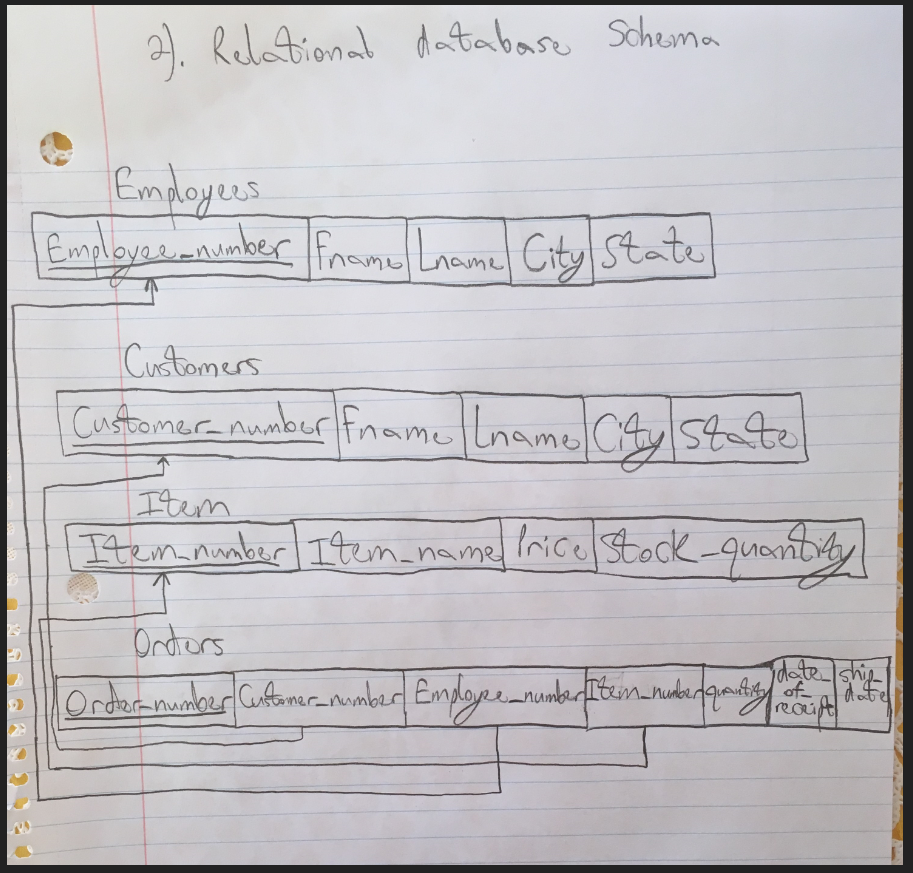 2). Relational database Schema
Employees
Employee_number Fname Lname City State
Customers
Customer_number Fname Lname City State
Item
Item_number Item_name Price Stock_quantity
Orders
Order_number Customer_number Employee_number Item_number quantity date_of_receipt ship_date